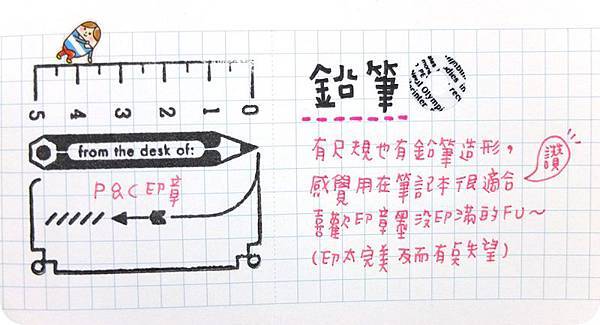 5 4 3 2 1 0
from the desk of:
P&C印章
鉛筆
有尺規也有鉛筆造形，
感覺用在筆記本很適合
讚
喜歡印章墨沒印滿的FU～
(印太完美反而有點失望)